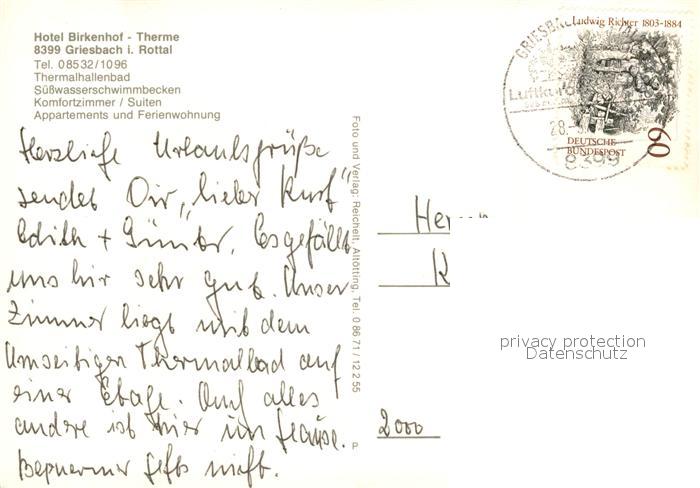 Hotel Birkenhof - Therme
8399 Griesbach i. Rottal
Tel. 08532/1096
Thermalhallenbad
Süßwasserschwimmbecken
Komfortzimmer / Suiten
Appartements und Ferienwohnung
Herzliche Urlaubsgrüße
sendet Dir, "lieber Kurt"
Edith + Günter. Es gefällt
uns hir sehr gut. Unser
Zimmer liegt mit dem
Umseitigen Thermalbad auf
einer Etage. Auch alles
andere ist hier im Hause.
Bequemer gehts nicht.
Foto und Verlag: Reichelt, Altötting, Tel. 0 86 71 / 12 2 55
P
Ludwig Richter 1803-1884
DEUTSCHE
BUNDESPOST
60
GRIESBACH
Luftkurort
28.
8399
Her
K
2000
privacy protection
Datenschutz